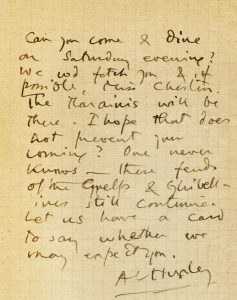 Can you come & dine
on Saturday evening?
We wd fetch you & , if
possible, Miss
The Maraini's will be
there. I hope that does
not prevent your
coming? One never
knows — these feuds
of the Guelfs & Ghibell-
ines still continue.
Let us have a card
to say whether we
may expect you.